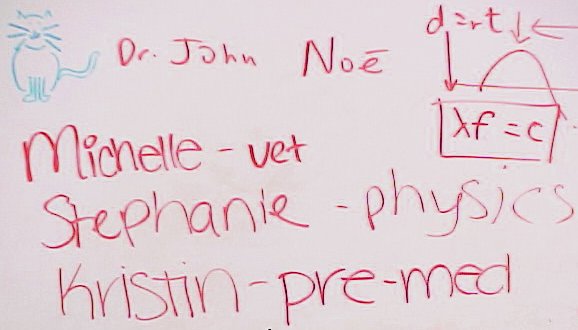 Dr. John Noē
d = rt
λf = c
Michelle - vet
Stephanie - physics
Kristin - pre-med